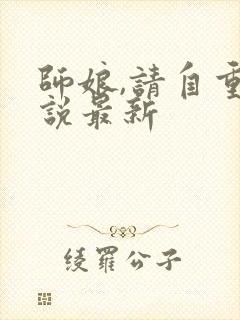 師娘,請自重
說最新
綾羅公子